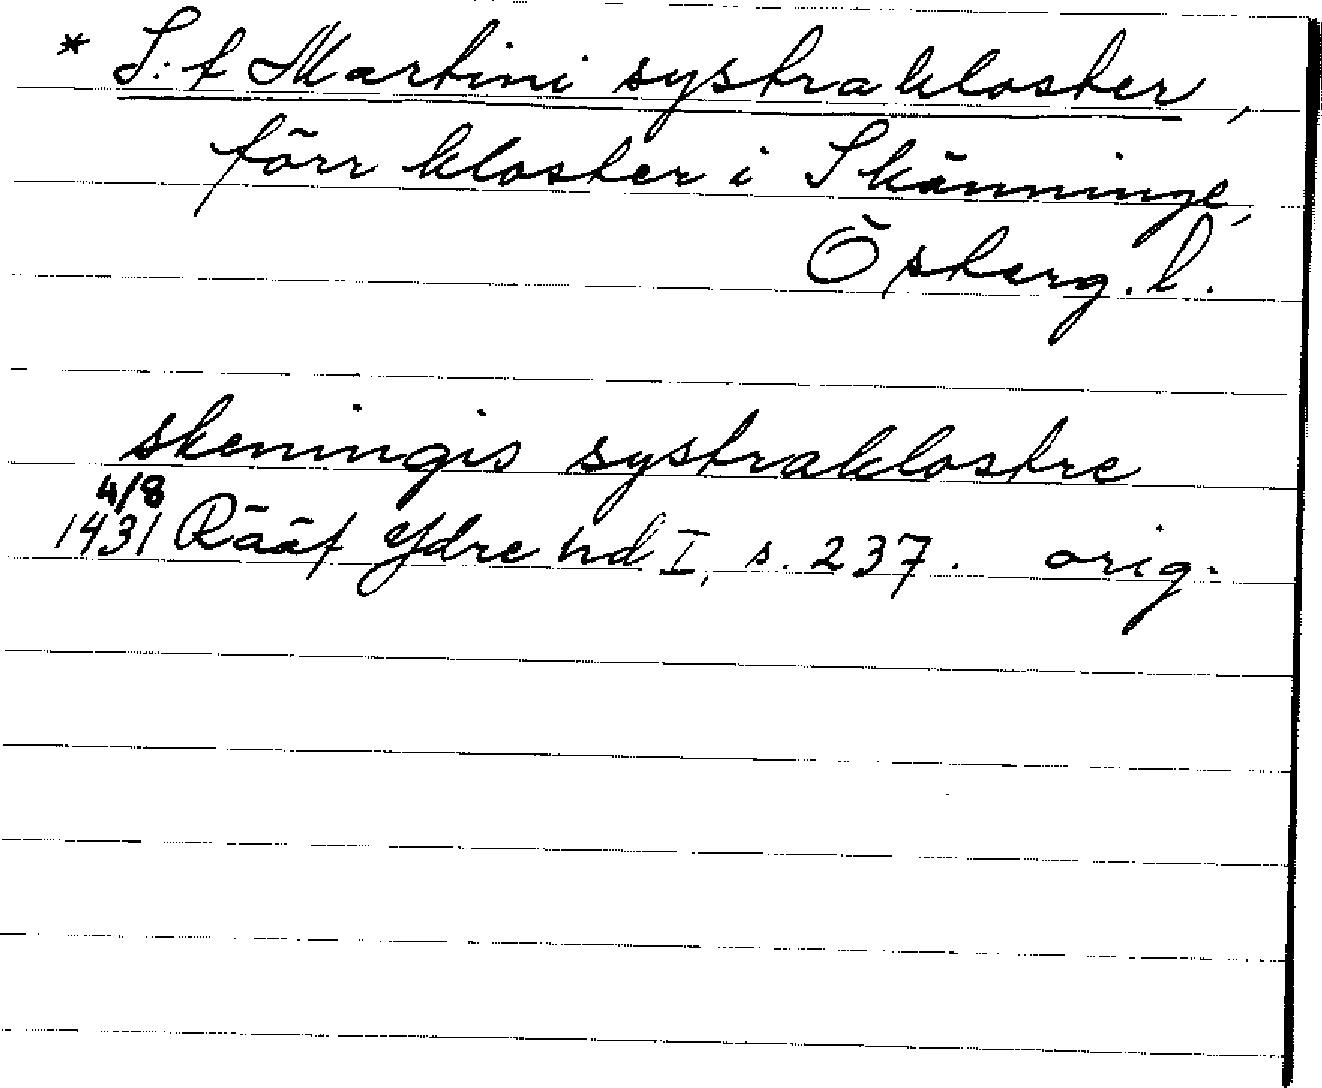 * S:t Martini systrakloster,
förr kloster i Skänninge,
Österg.l.
skeningis systraklostre
4/8
1431 Rääf Ydre hd I, s. 237. orig.